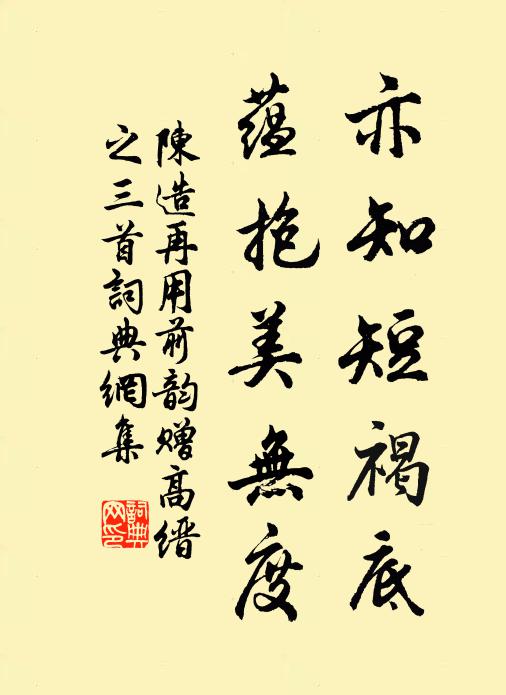 亦知短褐底
蘊抱美無度
陳造再用前韵贈高縉
之三首詞典網集
詞典
网印